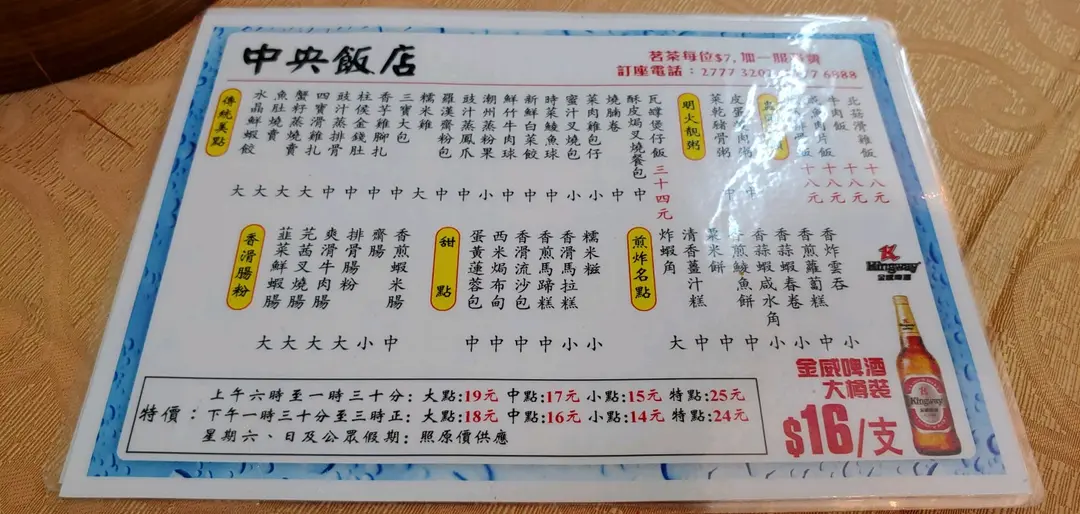 中央飯店
茗茶每位$7,加一服務費
訂座電話：2777 3202
6988
傳統美點
水晶鮮蝦餃 大
魚肚燒賣 大
蟹籽蒸燒賣 大
四寶滑雞扎 大
豉汁蒸排骨 中
柱侯金錢肚 中
香芋雞腳扎 中
三寶大包 中
糯米雞 大
羅漢齋粉包 中
豉汁蒸鳳爪 中
潮州蒸粉果 小
鮮竹牛肉球 中
新鮮白菜餃 中
時菜鯪魚球 中
蜜汁叉燒包 小
菜肉雞包仔 小
燒腩卷 中
酥皮焗叉燒餐包 中
瓦罉煲仔飯 三十四元
明火靚粥
菜乾豬骨粥 中
皮蛋瘦肉粥 中
飯 十八元
魚肉片飯 十八元
牛肉飯 十八元
北菇滑雞飯 十八元
香滑腸粉
韮菜鮮蝦腸 大
芫茜叉燒腸 大
爽滑牛肉腸 大
排骨腸粉 大
齋腸 小
香煎蝦米腸 中
甜點
蛋黃蓮蓉包 中
西米焗布甸 中
香滑流沙包 中
香煎馬蹄糕 中
香滑馬拉糕 小
糯米糍 小
煎炸名點
炸蝦角 大
清香薑汁糕 中
粟米餅 中
香煎鯪魚餅 中
香蒜蝦咸水角 小
香蒜蝦春卷 小
香煎蘿蔔糕 中
香炸雲吞 小
Kingway
金威啤酒
金威啤酒
大樽裝
$16/支
特價：
上午六時至一時三十分：大點:19元 中點:17元 小點:15元 特點:25元
下午一時三十分至三時正：大點:18元 中點:16元 小點:14元 特點:24元
星期六、日及公眾假期：照原價供應